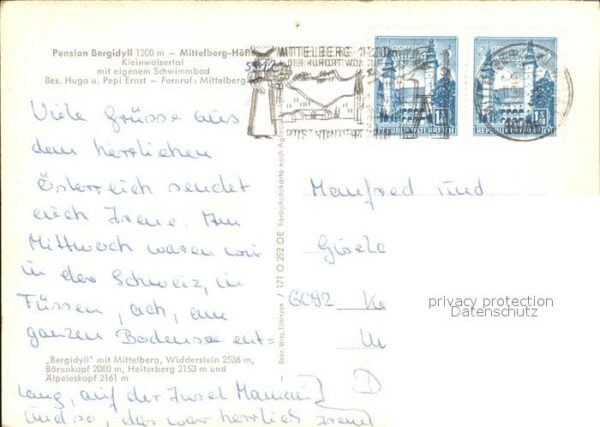 Pension Bergidyll 1200 m – Mittelberg-Höfle
Kleinwalsertal
mit eigenem Schwimmbad
Bes. Hugo u. Pepi Ernst – Fernruf: Mittelberg
MITTELBERG
REPUBLIK ÖSTERREICH
REPUBLIK ÖSTERREICH
Viele Grüsse aus
dem herrlichen
Österreich sendet
euch Irene. Am
Mittwoch waren wir
in der Schweiz, in
Füssen, ach, am
ganzen Bodensee ent=
lang, auf der Insel Mainau
und so, das war herrlich
Manfred und
Gisela
Ke
D
privacy protection
Datenschutz
171 O 292 OE Farbphotokarte nach
„Bergidyll" mit Mittelberg, Widderstein 2536 m,
Bärenkopf 2080 m, Heiterberg 2153 m und
Älpeleskopf 2161 m